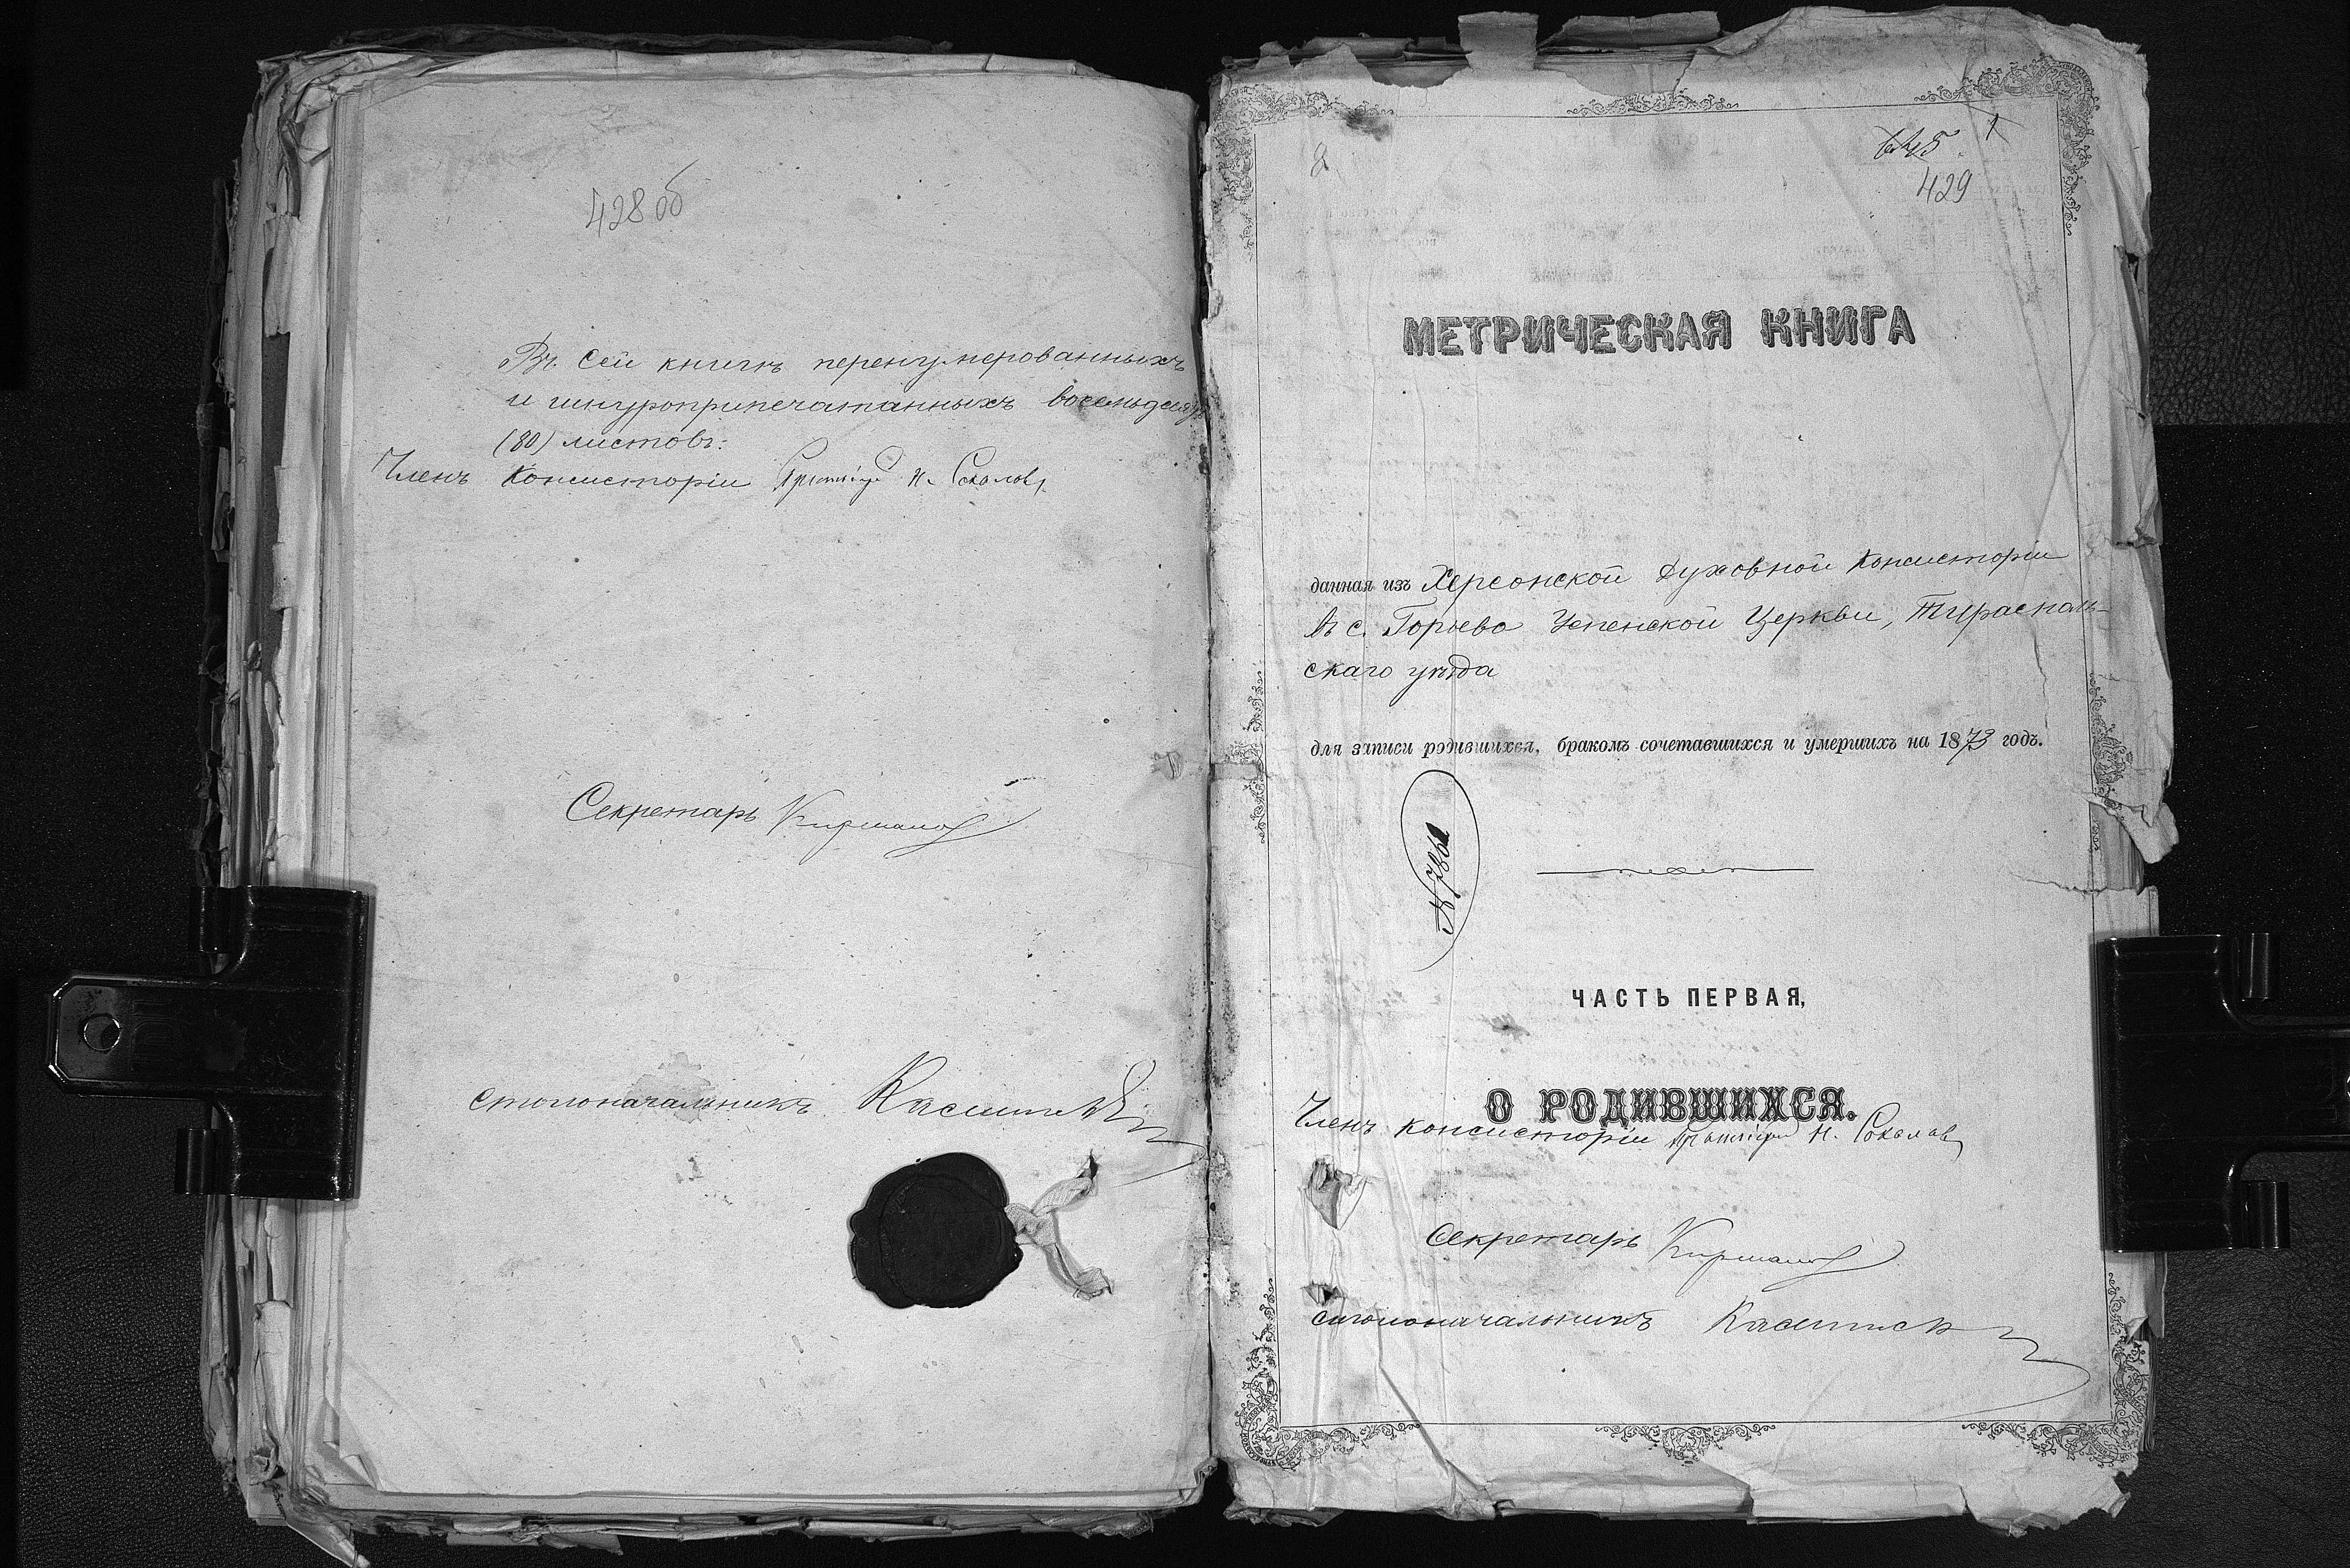 428 об
Въ сей книгѣ перенумерованныхъ
и шнуроприпечатанныхъ восемьдесятъ
(80) листовъ:
Членъ Консисторіи Н. Соколовъ
Секретарь
Столоначальникъ
1
429
МЕТРИЧЕСКАЯ КНИГА
данная изъ Херсонской Духовной Консисторіи
въ с. Горьево Успенской Церкви, Тирасполь-
скаго уѣзда
для записи родившихся, бракомъ сочетавшихся и умершихъ на 1873 годъ.
ЧАСТЬ ПЕРВАЯ,
О РОДИВШИХСЯ.
Членъ консисторіи Н. Соколовъ
Секретарь
Столоначальникъ